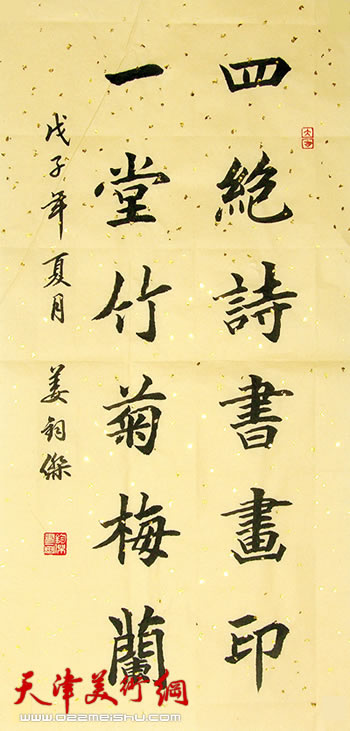 四絶詩書畫印
一堂竹菊梅蘭
戊子年夏月 姜鈞傑
天津美術網
www.022meishu.com